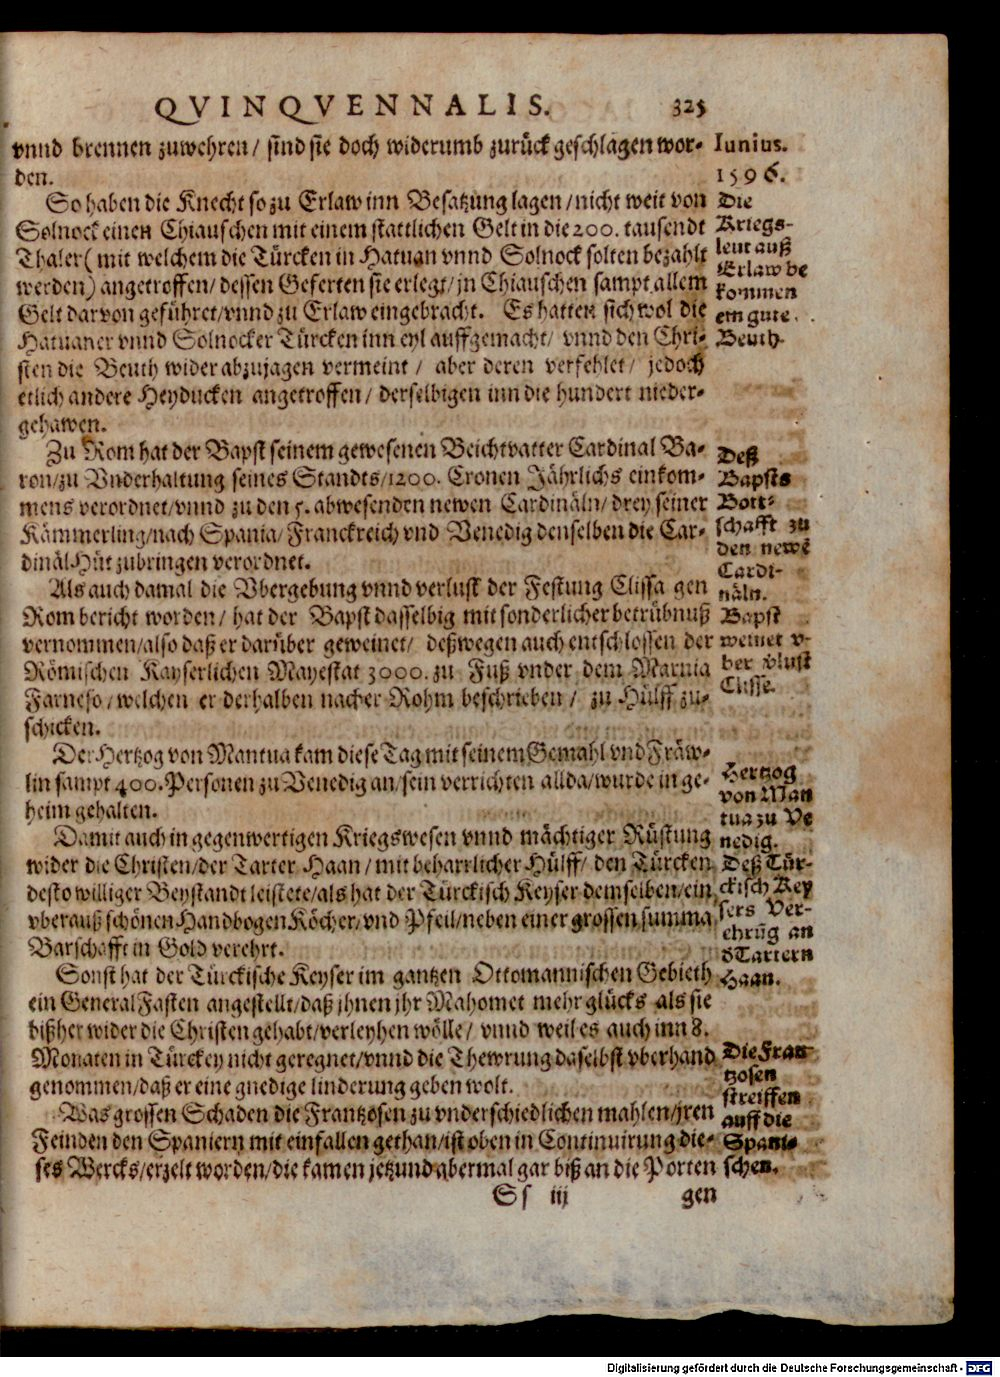 QVINQVENNALIS. 325
vnnd brennen zuwehren/ sind sie doch widerumb zurück geschlagen wor-
den.
So haben die Knecht so zu Erlaw inn Besatzung lagen/nicht weit von
Solnock einen Chiauschen mit einem stattlichen Gelt in die 200. tausendt
Thaler (mit welchem die Türcken in Hatuan vnnd Solnock solten bezahlt
werden) angetroffen/ dessen Geferten sie erlegt/ jn Chiauschen sampt allem
Gelt darvon geführet/vnnd zu Erlaw eingebracht. Es hatten sich wol die
Hatuaner vnnd Solnocker Türcken inn eyl auffgemacht/ vnnd den Chri-
sten die Beuth wider abzujagen vermeint/ aber deren verfehlet/ jedoch
etlich andere Heyducken angetroffen/ derselbigen inn die hundert nieder-
gehawen.
Zu Rom hat der Bapst seinem gewesenen Beichtvatter Cardinal Ba-
ron/zu Vnderhaltung seines Standts/1200. Cronen Jährlichs einkom-
mens verordnet/vnnd zu den 5. abwesenden newen Cardinäln/ drey seiner
Kämmerling/nach Spania/ Franckreich vnd Venedig denselben die Car-
dinäl Hüt zubringen verordnet.
Als auch damal die Vbergebung vnnd verlust der Festung Clissa gen
Rom bericht worden/ hat der Bapst dasselbig mit sonderlicher betrübnuß
vernommen/also daß er darüber geweinet/ deßwegen auch entschlossen der
Römischen Kayserlichen Mayestat 3000. zu Fuß vnder dem Marnia
Farneso/welchen er derhalben nacher Rohm beschrieben/ zu Hülff zu-
schicken.
Der Hertzog von Mantua kam diese Tag mit seinem Gemahl vnd Fräw-
lin sampt 400. Personen zu Venedig an/sein verrichten allda/wurde in ge-
heim gehalten.
Damit auch in gegenwertigen Kriegswesen vnnd mächtiger Rüstung
wider die Christen/der Tarter Haan/mit beharrlicher Hülff/ den Türcken
desto williger Beystandt leistete/als hat der Türckisch Keyser demselben/ein
vberauß schönen Handbogen Köcher/vnd Pfeil/neben einer grossen summa
Barschafft in Gold verehrt.
Sonst hat der Türckische Keyser im gantzen Ottomannischen Gebieth
ein General Fasten angestellt/daß jhnen jhr Mahomet mehr glücks als sie
bißher wider die Christen gehabt/verleyhen wölle/ vnnd weil es auch inn 8.
Monaten in Türckey nicht geregnet/vnnd die Thewrung daselbst vberhand
genommen/daß er eine gnedige linderung geben wolt.
Was grossen Schaden die Frantzosen zu vnderschiedlichen mahlen/jren
Feinden den Spaniern mit einfallen gethan/ist oben in Continuirung die-
ses Wercks/erzelt worden/die kamen jetzund abermal gar biß an die Porten
Ss iij gen
Iunius.
1596.
Die
Kriegs-
leut auß
Erlaw be
kommen
ein gute
Beuth.
Deß
Bapsts
Bott-
schafft zu
den newē
Cardi-
näln.
Bapst
weinet v-
ber vlust
Clisse.
Hertzog
von Man
tua zu Ve
nedig.
Deß Tür-
ckisch Key
sers Ver-
ehrūg an
d Tartern
Haan.
Die Fran
tzosen
streiffen
auff die
Spani-
schen.
Digitalisierung gefördert durch die Deutsche Forschungsgemeinschaft - DFG